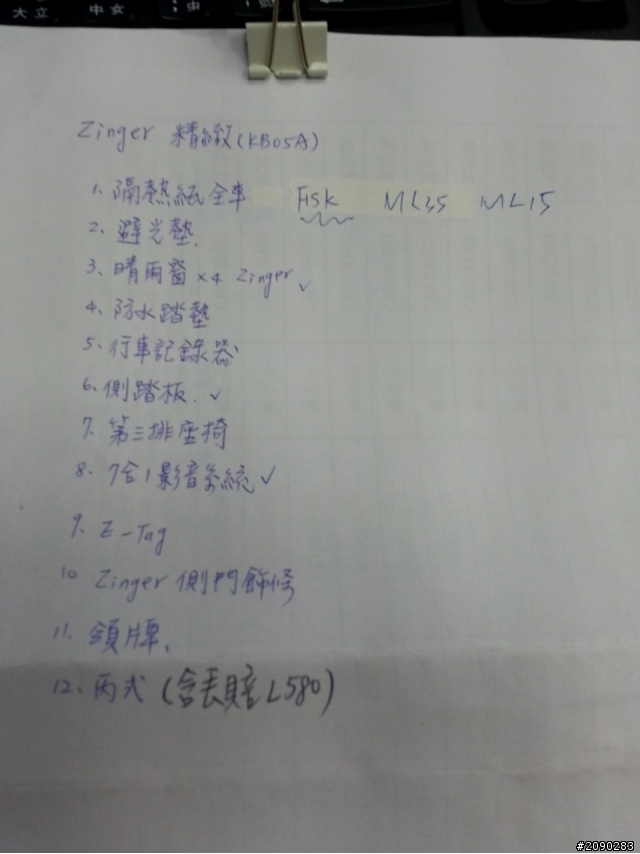 大 立 中 女 ; 虫
Zinger 精緻(KB05A)
1. 隔熱紙全車 FISK ML35 ML15
2. 避光墊.
3. 晴雨窗 ×4 Zinger ✓
4. 防水踏墊
5. 行車記錄器
6. 側踏板. ✓
7. 第三排座椅
8. 7合1影音系統 ✓
9. E-Tag
10 Zinger 側門飾條
11. 領牌.
12. 丙式 (含丟賠L580)
#2090283